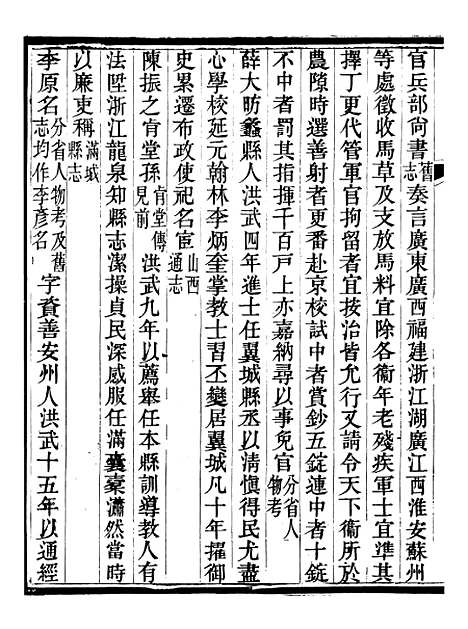 官兵部尚書舊志奏言廣東廣西福建浙江湖廣江西淮安蘇州
等處徵收馬草及支放馬料宜除各衞年老殘疾軍士宜準其
擇丁更代管軍官拘留者宜按治皆允行又請令天下衞所於
農隙時選善射者更番赴京校試中者賞鈔五錠連中者十錠
不中者罰其指揮千百戸上亦嘉納尋以事免官分省人物考
薛大昉蠡縣人洪武四年進士任翼城縣丞以清愼得民尤盡
心學校延元翰林李炳奎掌教士習丕變居翼城凡十年擢御
史累遷布政使祀名宦山西通志
陳振之肻堂孫肻堂傳見前洪武九年以薦舉任本縣訓導教人有
法陞浙江龍泉知縣志潔操貞民深感服任滿囊橐瀟然當時
以廉吏稱滿城縣志
李原名分省人物考及舊志均作李彥名字資善安州人洪武十五年以通經